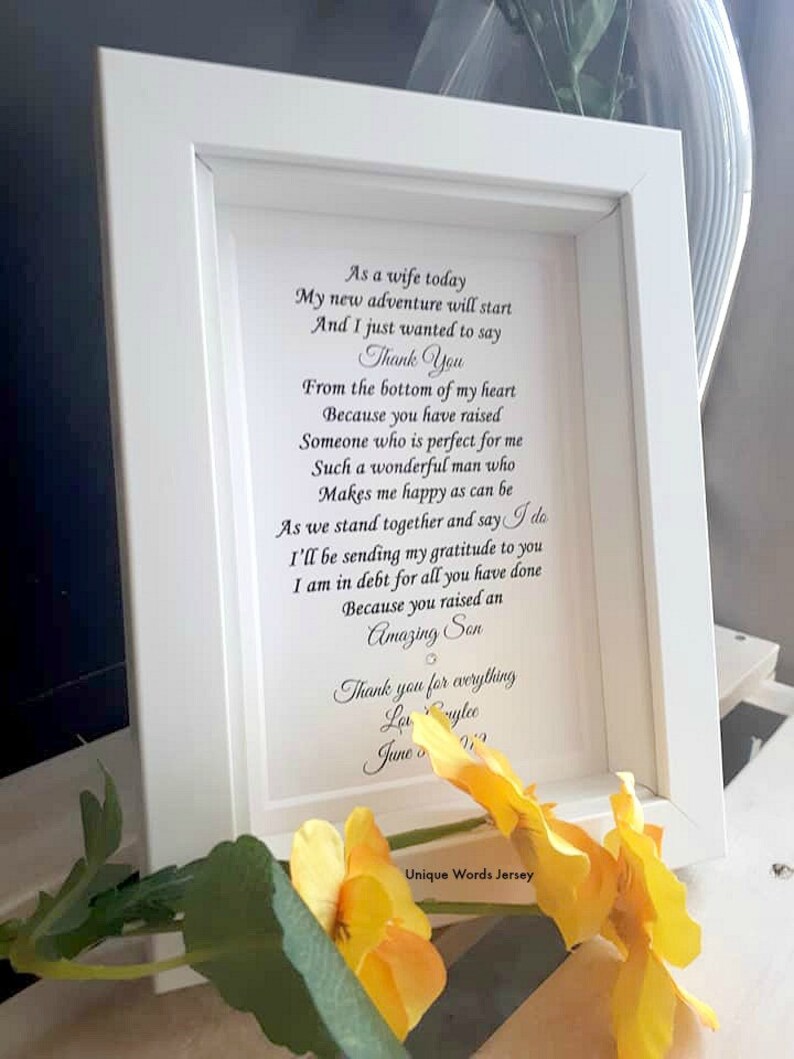 As a wife today
My new adventure will start
And I just wanted to say
Thank You
From the bottom of my heart
Because you have raised
Someone who is perfect for me
Such a wonderful man who
Makes me happy as can be
As we stand together and say I do
I'll be sending my gratitude to you
I am in debt for all you have done
Because you raised an
Amazing Son
Thank you for everything
June
Unique Words Jersey